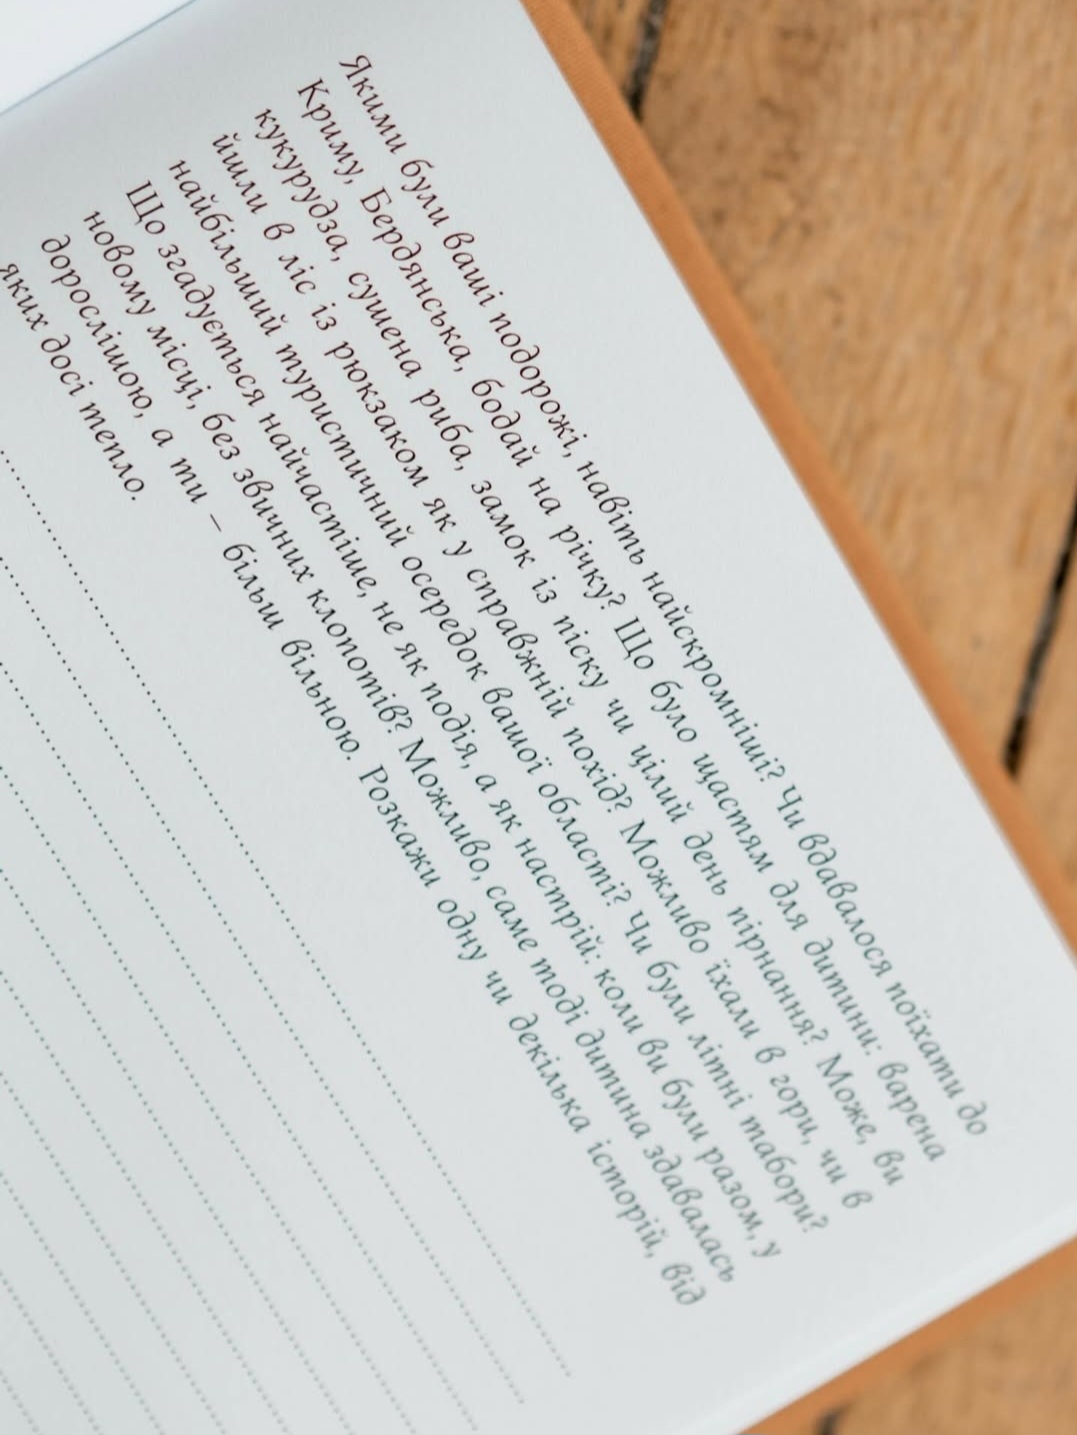 Якими були ваші подорожі, навіть найскромніші? Чи вдавалося поїхати до
Криму, Бердянська, бодай на річку? Що було щастям для дитини: варена
кукурудза, сушена риба, замок із піску чи цілий день пірнання? Може, ви
йшли в ліс із рюкзаком як у справжній похід? Можливо їхали в гори, чи в
найбільший туристичний осередок вашої області? Чи були літні табори?
Що згадується найчастіше, не як подія, а як настрій: коли ви були разом, у
новому місці, без звичних клопотів? Можливо, саме тоді дитина здавалась
дорослішою, а ти – більш вільною. Розкажи одну чи декілька історій, від
яких досі тепло.